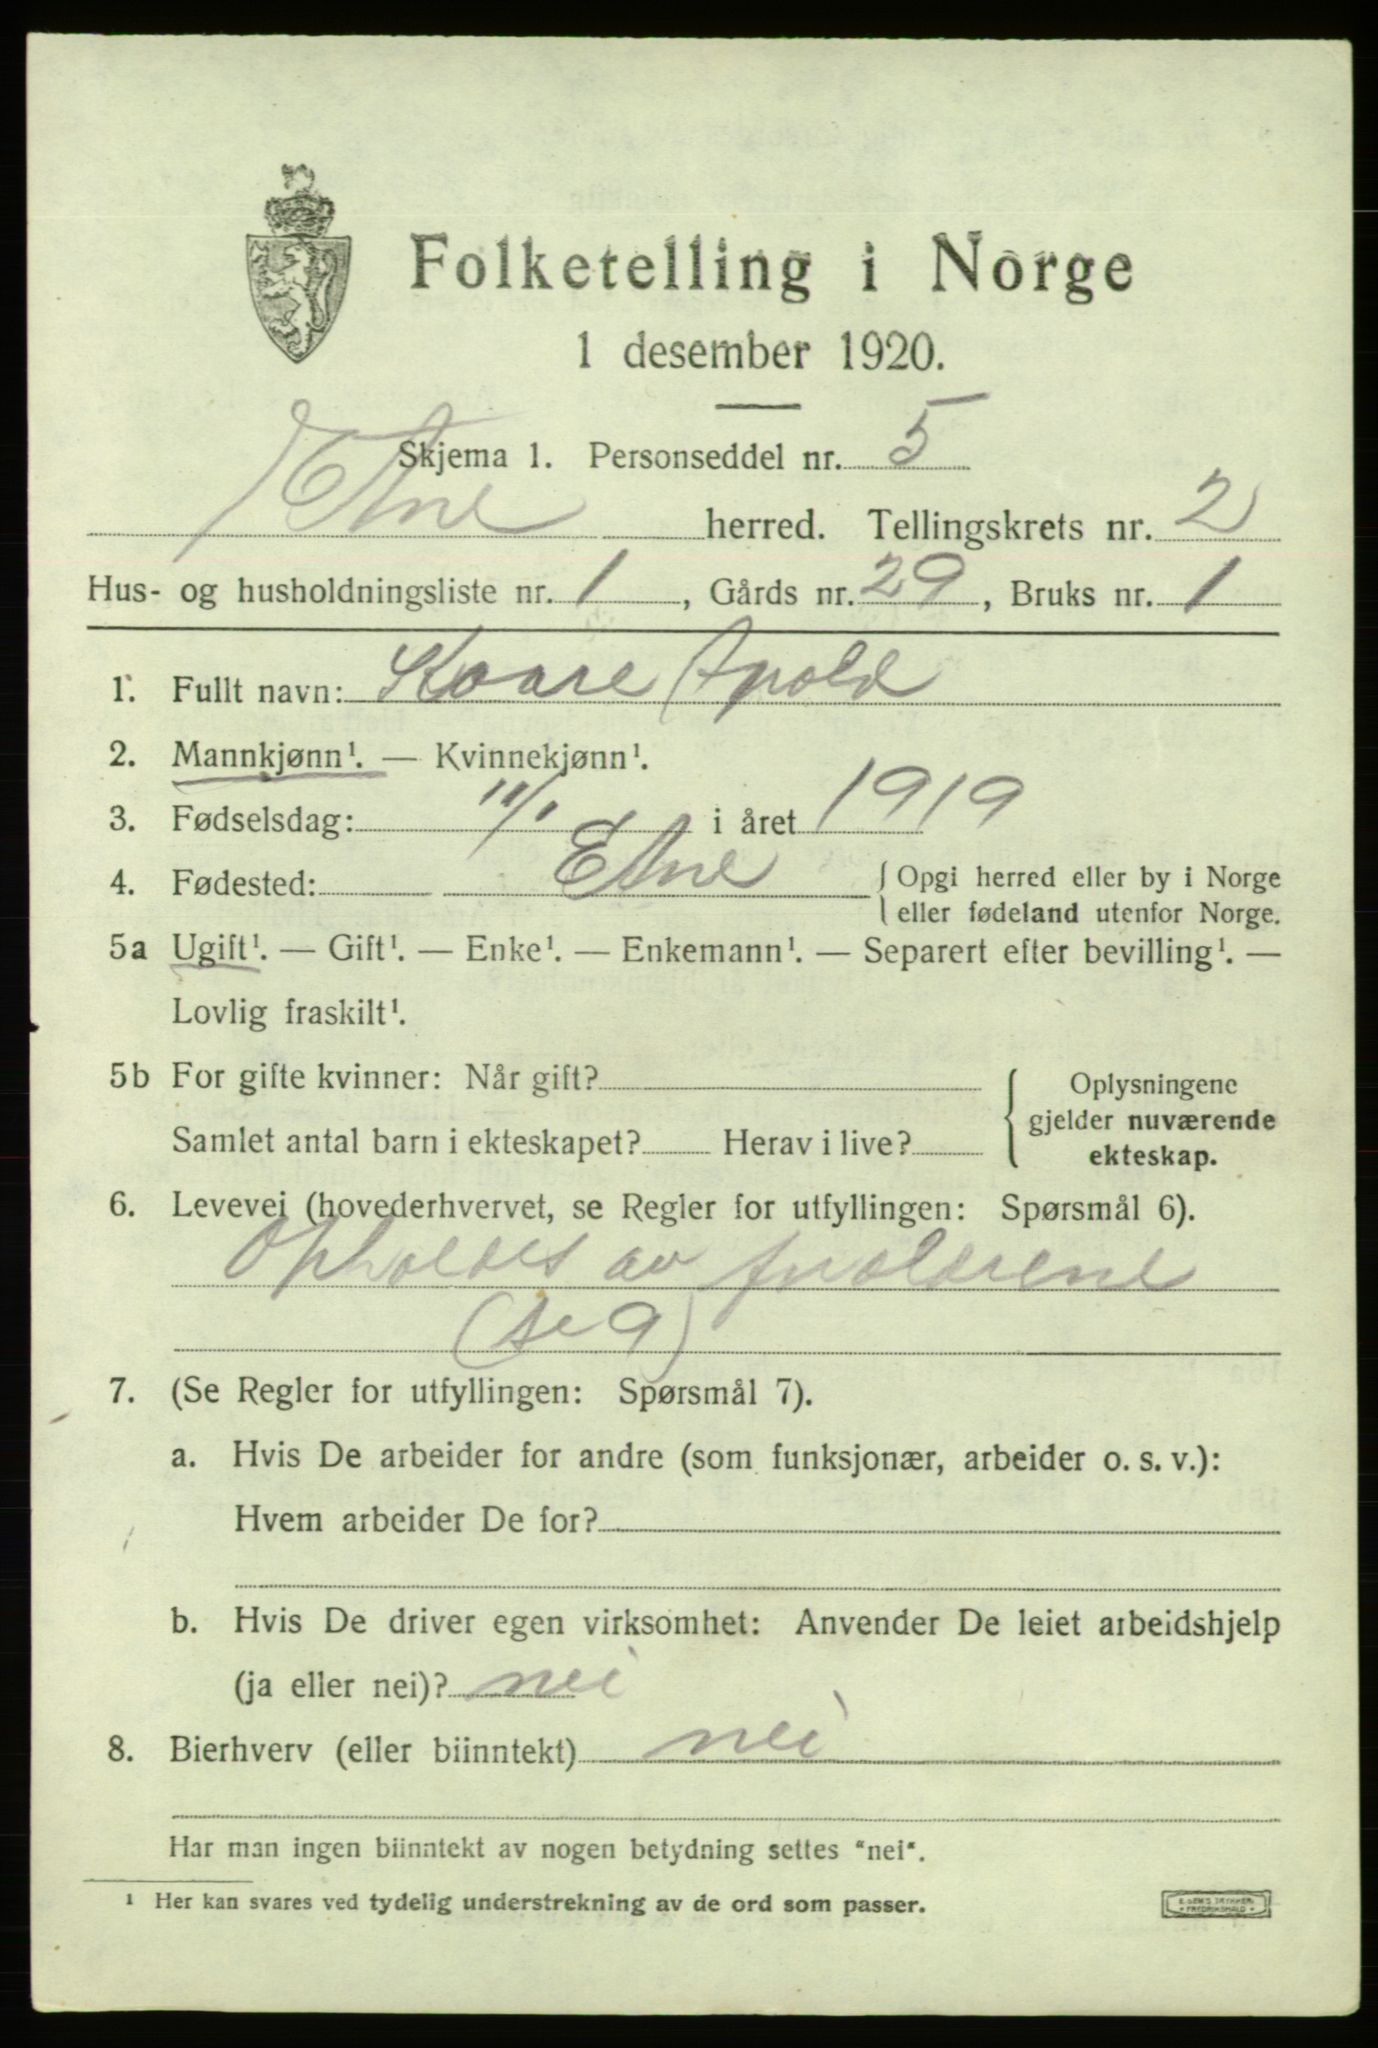 Folketelling i Norge
1 desember 1920.
Skjema 1. Personseddel nr. 5
Etne herred. Tellingskrets nr. 2
Hus- og husholdningsliste nr. 1, Gårds nr. 29, Bruks nr. 1
1. Fullt navn: Kaare Apold
2. Mannkjønn¹. — Kvinnekjønn¹.
3. Fødselsdag: 11/1 i året 1919
4. Fødested: Etne { Opgi herred eller by i Norge
eller fødeland utenfor Norge.
5a Ugift¹. — Gift¹. — Enke¹. — Enkemann¹. — Separert efter bevilling¹. —
Lovlig fraskilt¹.
5b For gifte kvinner: Når gift? { Oplysningene
gjelder nuværende
Samlet antal barn i ekteskapet? Herav i live?
ekteskap.
6. Levevei (hovederhvervet, se Regler for utfyllingen: Spørsmål 6).
Opholdes av forældrene
(se 9)
7. (Se Regler for utfyllingen: Spørsmål 7).
a. Hvis De arbeider for andre (som funksjonær, arbeider o. s. v.):
Hvem arbeider De for?
b. Hvis De driver egen virksomhet: Anvender De leiet arbeidshjelp
(ja eller nei)? nei
8. Bierhverv (eller biinntekt) nei
Har man ingen biinntekt av nogen betydning settes "nei".
¹ Her kan svares ved tydelig understrekning av de ord som passer.